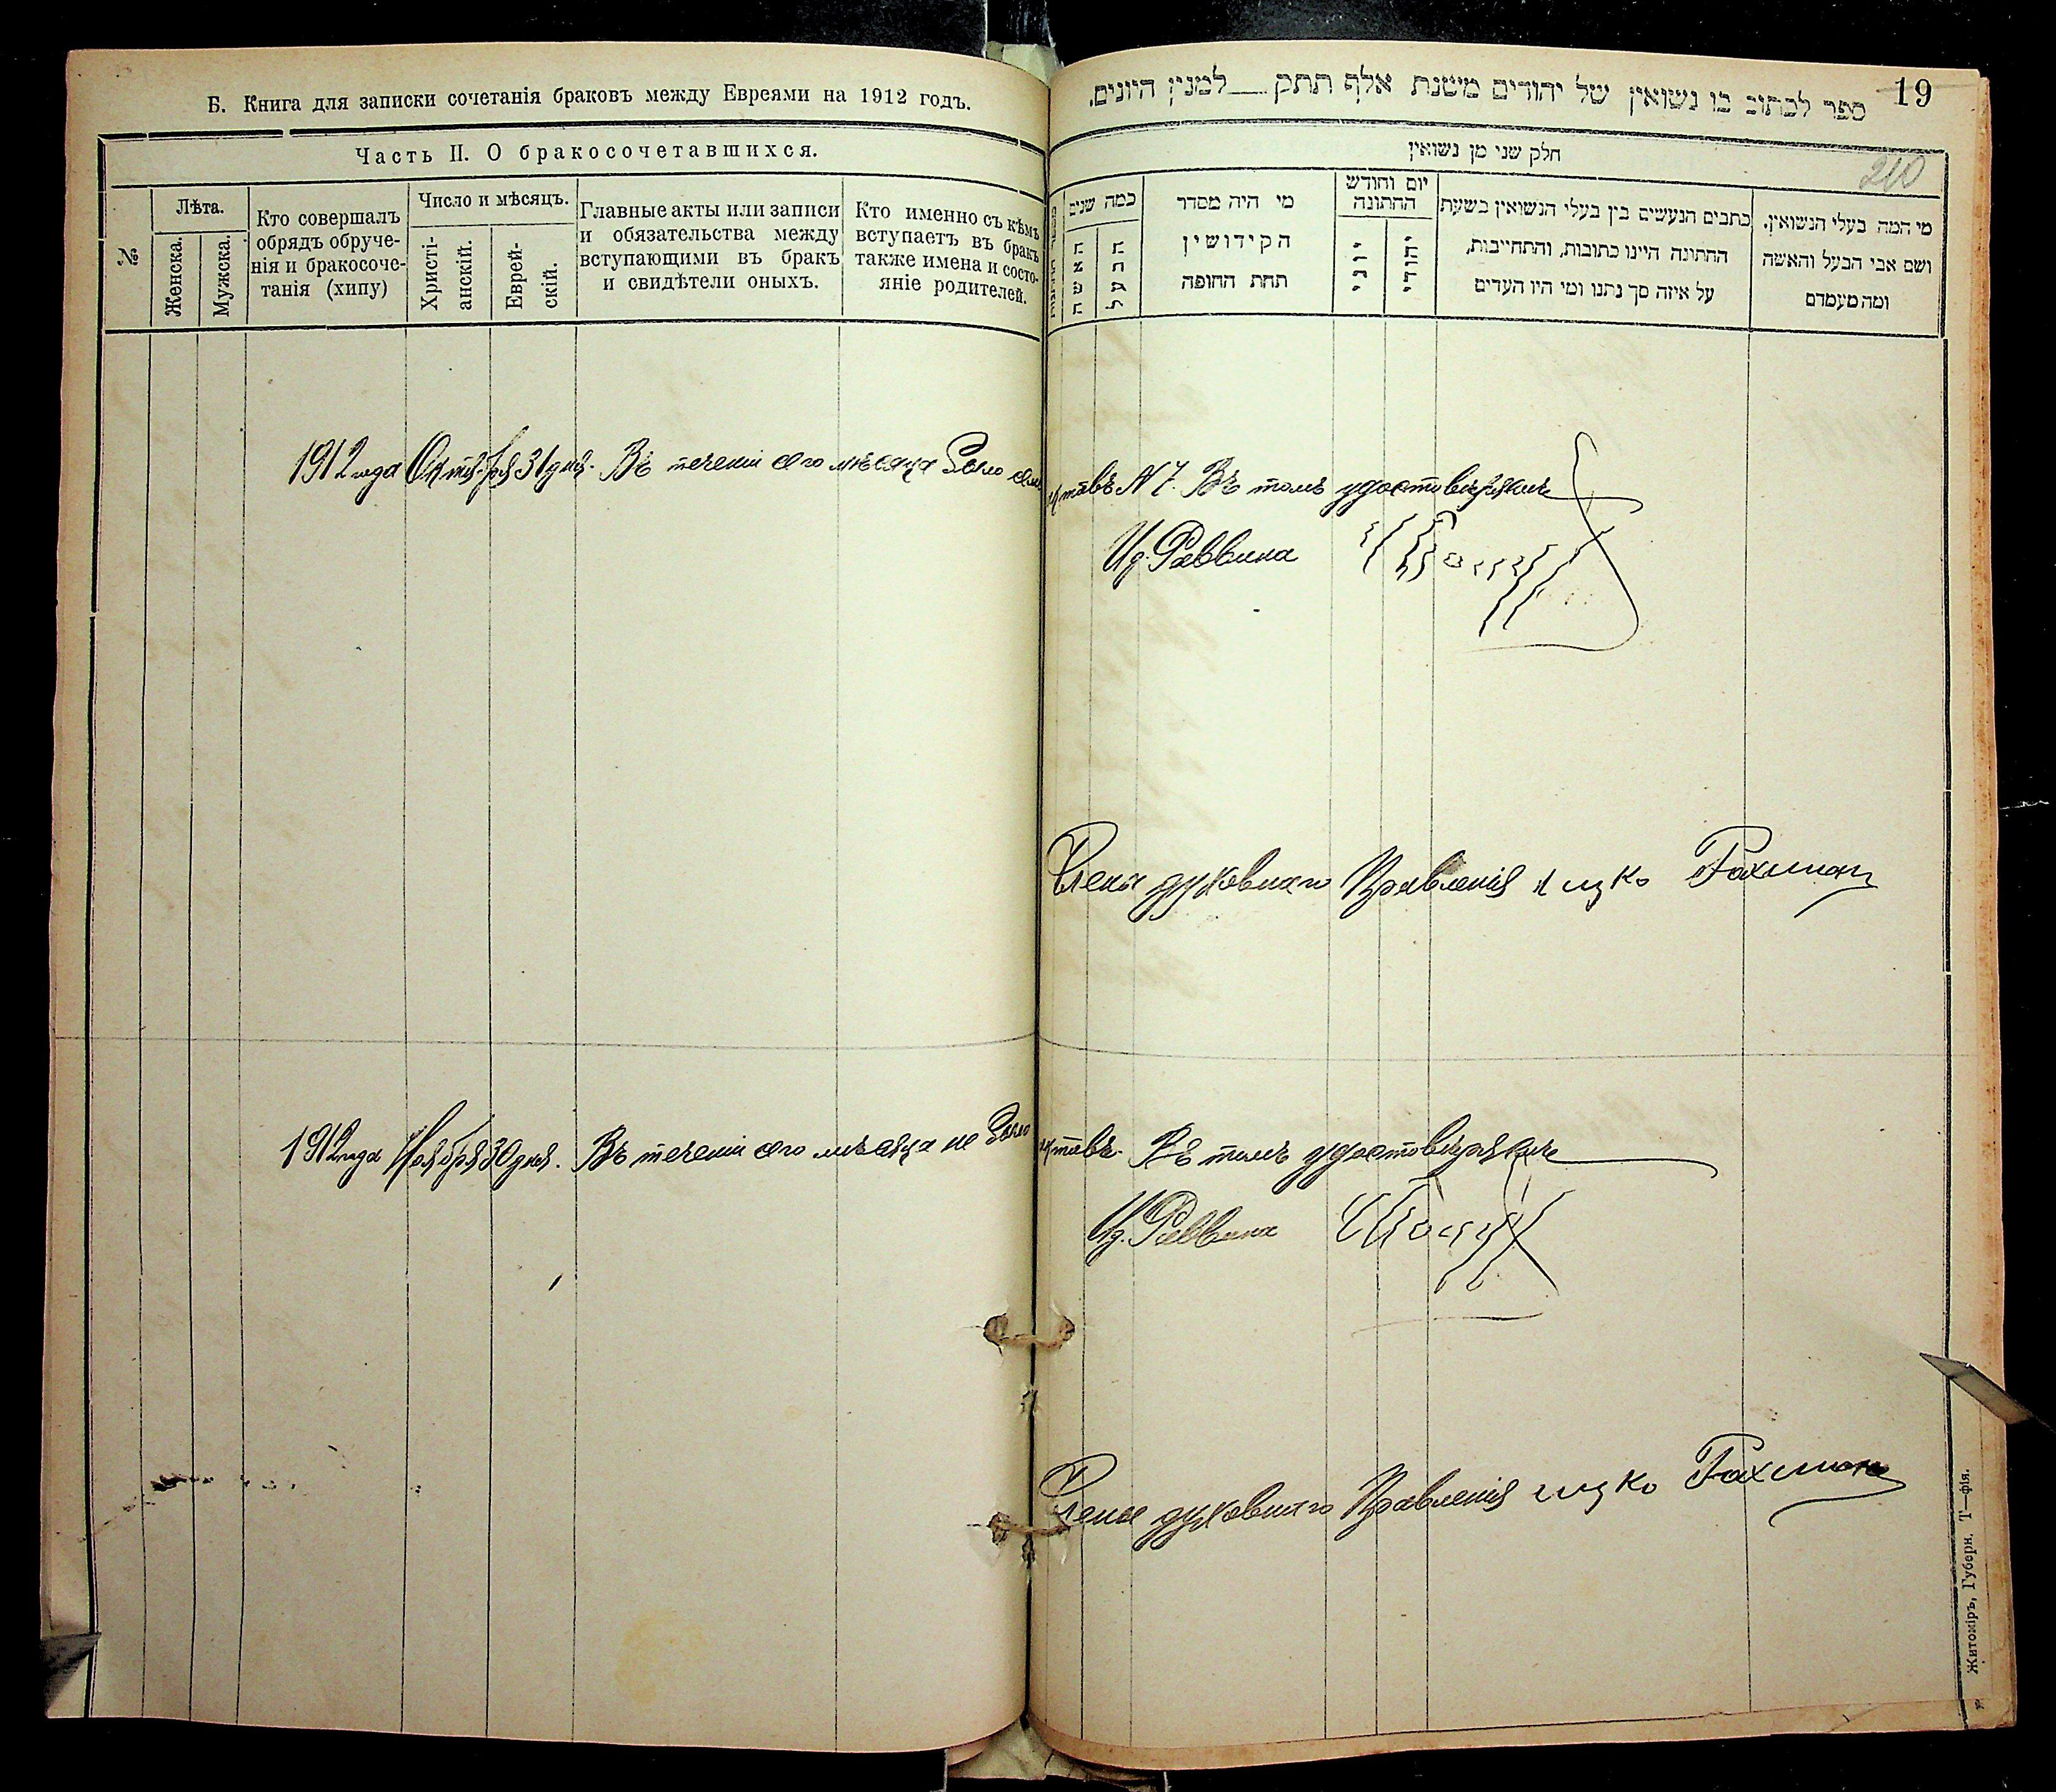 Б. Книга для записки сочетанія браковъ между Евреями на 1912 годъ.
Часть II. О бракосочетавшихся.
№
Лѣта.
Женска.
Мужска.
Кто совершалъ
обрядъ обруче-
нія и бракосоче-
танія (хипу)
Число и мѣсяцъ.
Христі-
анскій.
Еврей-
скій.
Главные акты или записи
и обязательства между
вступающими въ бракъ
и свидѣтели оныхъ.
Кто именно съ кѣмъ
вступаетъ въ бракъ
также имена и состо-
яніе родителей.
1912 года Октября 31 дня. Въ теченіи сего мѣсяца было
1912 года Ноября 30 дня. Въ теченіи сего мѣсяца не было
19
ספר לכתוב בו נשואין של יהודים משנת אלף תתק למנין היונים.
210
חלק שני מן נשואין
כמה שנים
האשה
הבעל
מי היה מסדר
הקידושין
תחת החופה
יום וחודש
החתונה
יוני
יהודי
כתבים הנעשים בין בעלי הנשואין בשעת
החתונה היינו כתובות, והתחייבות,
על איזה סך נתנו ומי היו העדים
מי המה בעלי הנשואין.
ושם אבי הבעל והאשה
ומה מעמדם
актовъ № 7. Въ томъ удостовѣряемъ
И.д. Раввина
Члены духовнаго Правленія Ицко Гохман
актовъ. Въ томъ удостовѣряемъ
И.д. Раввина
Члены духовнаго Правленія Ицко Гохман
Житоміръ, Губерн. Т—фія.